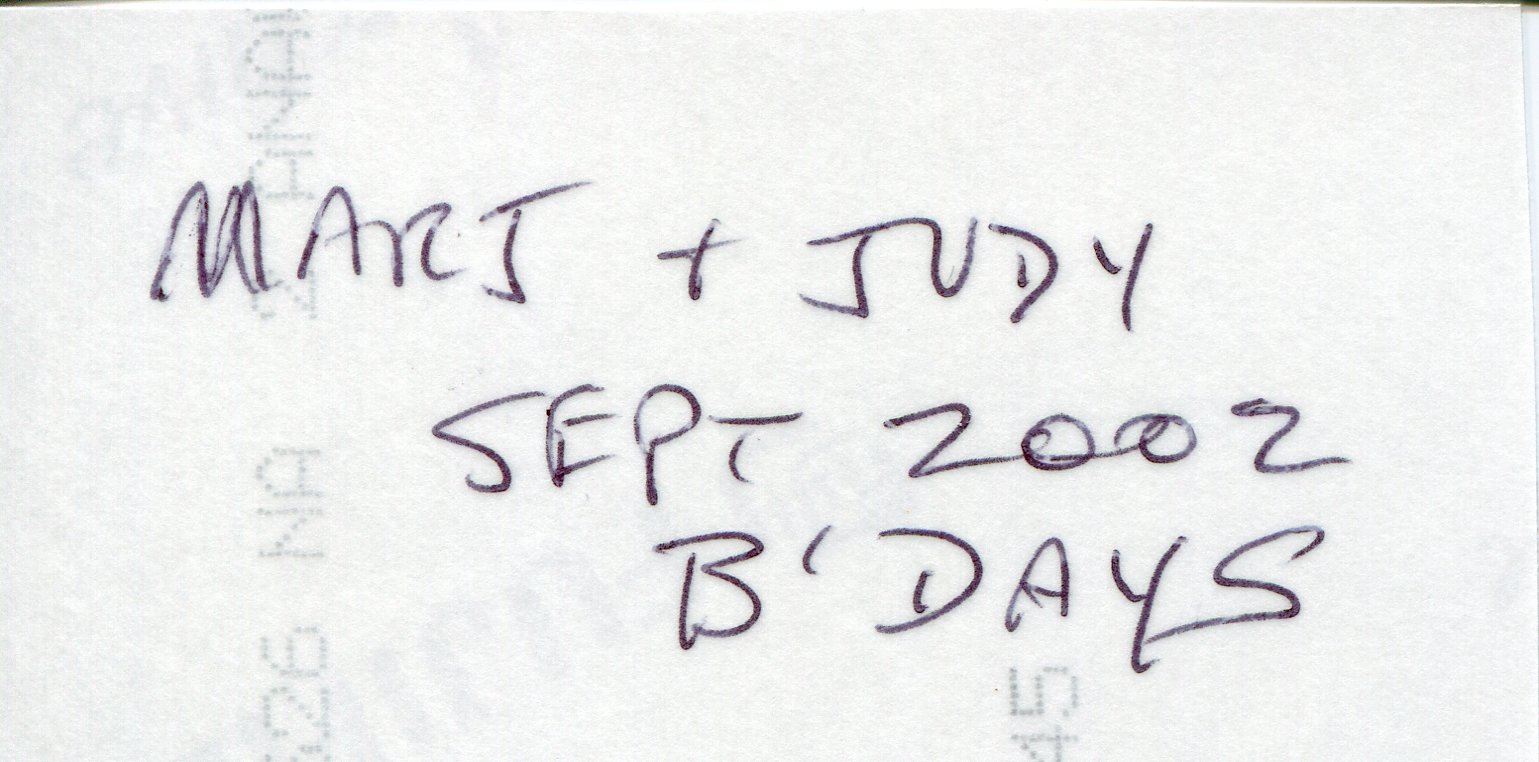 MARJ + JUDY
SEPT 2002
B'DAYS
NA